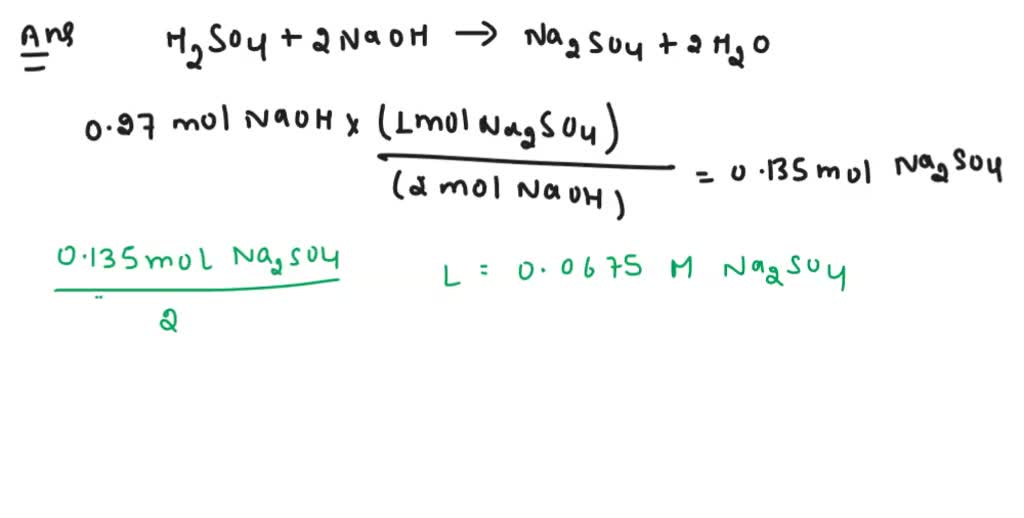 Ans H₂SO₄ + 2NaOH → Na₂SO₄ + 2H₂O
0.27 mol NaOH x (1mol Na₂SO₄) / (2 mol NaOH) = 0.135 mol Na₂SO₄
0.135 mol Na₂SO₄ / 2 L = 0.0675 M Na₂SO₄